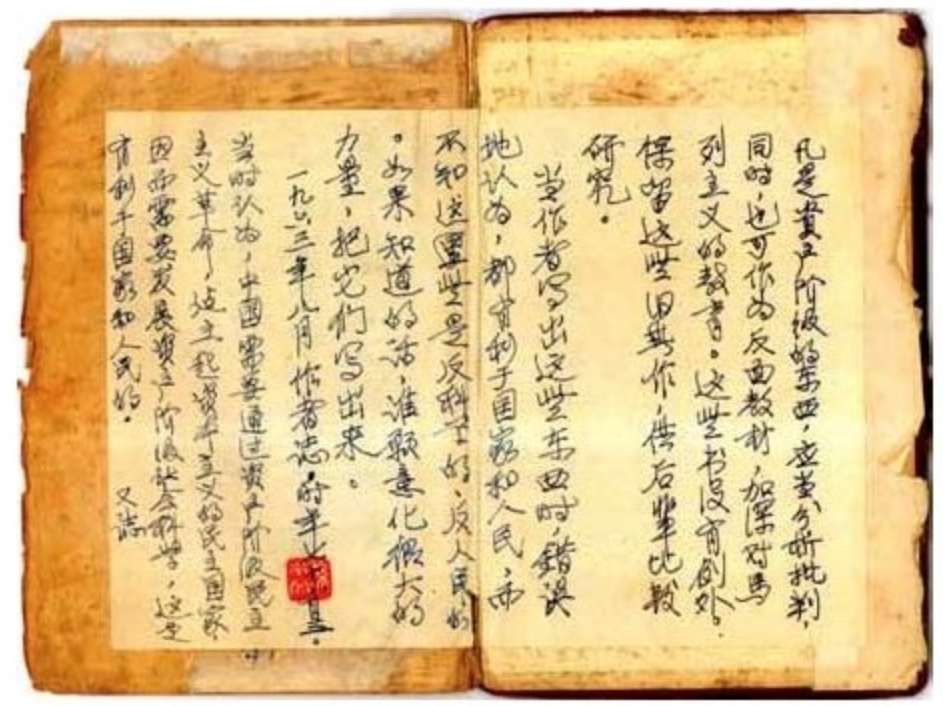 凡是資产阶级的东西，应当分析批判，
同时，也可作为反面教材，加深对馬
列主义的教育。这些书没有例外。
保留这些旧著作，供后辈比较
研究。
当作者写出这些东西时，错误
地认为，都有利于国家和人民，而
不知这些是反科学的、反人民的
。如果知道的话，谁愿意化大的
力量，把它们写出来。
一九六三年八月作者志，时年七十有三。
当时认为，中国需要通过资产阶级民主
主义革命，建立起资本主义的民主国家
因而需要发展资产阶级社会科学，这是
有利于国家和人民的。 又志